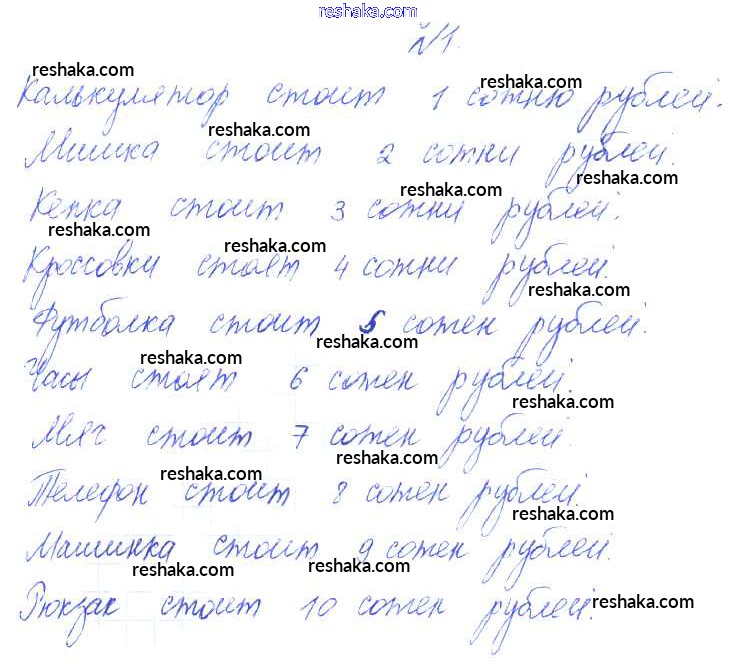 reshaka.com
№1.
reshaka.com
Калькулятор стоит 1 сотню рублей.
reshaka.com
reshaka.com
Мишка стоит 2 сотни рублей.
reshaka.com
reshaka.com
reshaka.com
Кепка стоит 3 сотни рублей.
reshaka.com
reshaka.com
Кроссовки стоят 4 сотни рублей.
reshaka.com
Футболка стоит 5 сотен рублей.
reshaka.com
reshaka.com
Часы стоят 6 сотен рублей.
reshaka.com
Мяч стоит 7 сотен рублей.
reshaka.com
reshaka.com
Телефон стоит 8 сотен рублей.
reshaka.com
Машинка стоит 9 сотен рублей.
reshaka.com
reshaka.com
Рюкзак стоит 10 сотен рублей.
reshaka.com